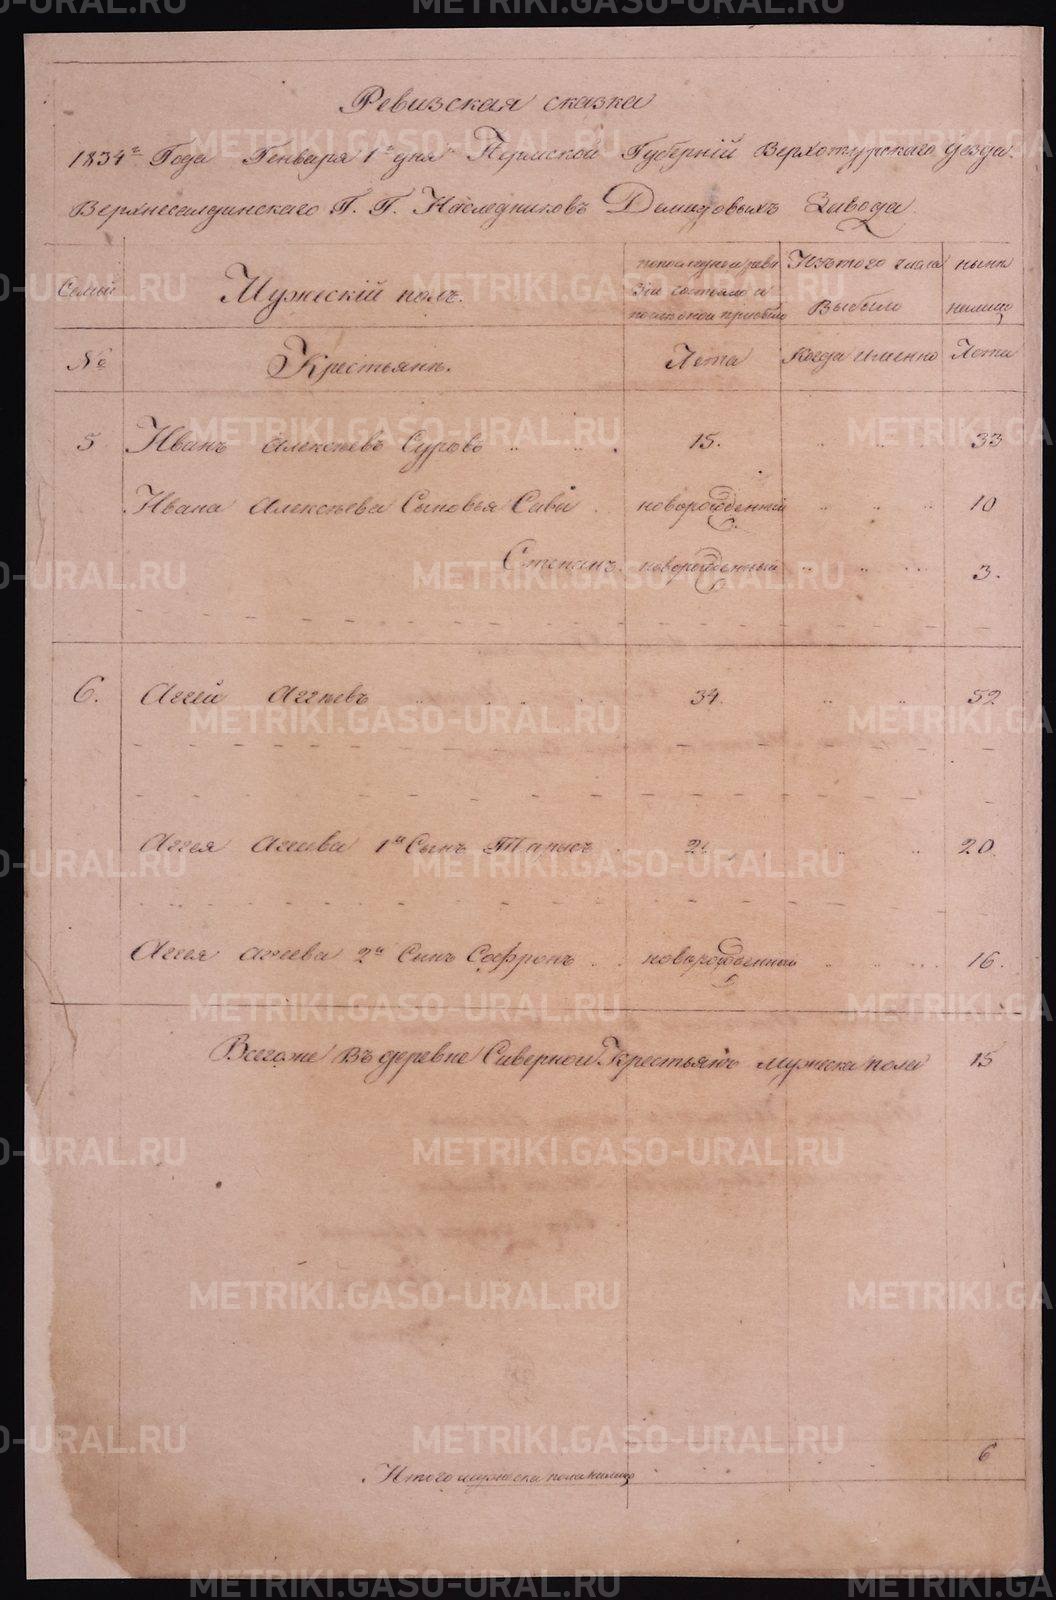 Ревизская сказка
1834го Года Генваря 1го дня Пермской Губернiи Верхотурскаго уезда
Верхнесалдинскаго Г. Г. Наследниковъ Демидовыхъ Завода
Семьи
Мужескiй полъ.
по последней реви
зiи состояло и
после оной прибыло
Изътого числа
Выбыло
ныне
налицо
№
Крестьяне.
Лета
Когда именно
Лета
5 Иванъ Алексеевъ Суровъ 15. 33
Ивана Алексеева Сыновья Сава новорожденный 10
Степанъ новорожденный 3.
6. Аггей Аггеевъ 34. 52
Аггея Аггеева 1й Сынъ Тарасъ 2. 20.
Аггея Аггеева 2й Сынъ Софронъ новорожденный 16.
Всегоже Въ деревне Северной Крестьянъ мужеска пола 15
Итого мужеска пола налицо 6
METRIKI.GASO-URAL.RU